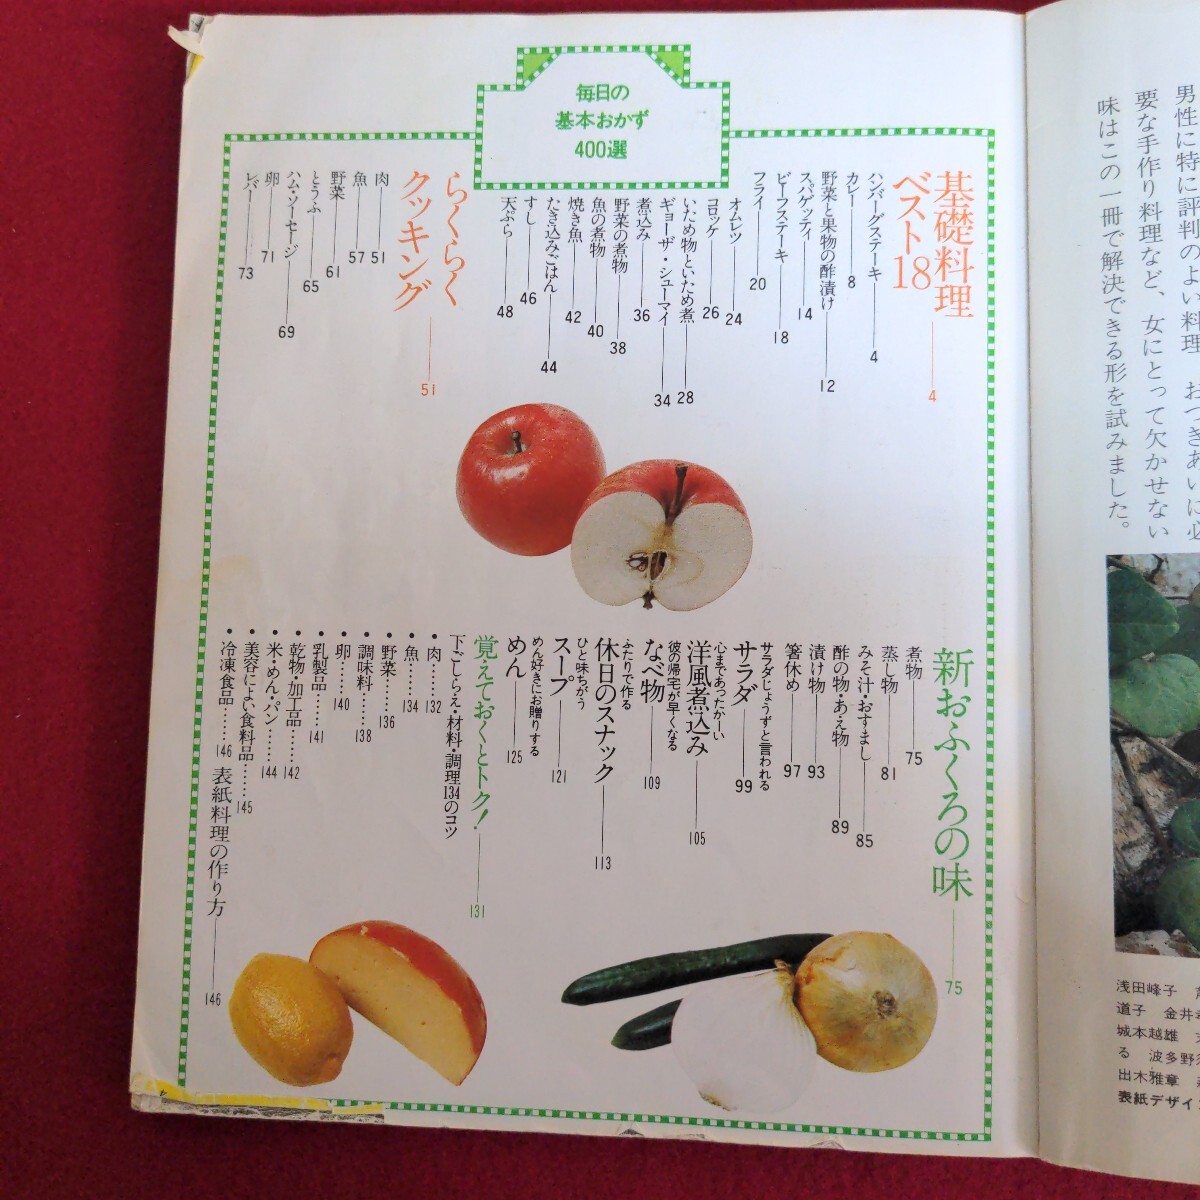 男性に特に評判のよい料理、おつきあいに必
要な手作り料理など、女にとって欠かせない
味はこの一冊で解決できる形を試みました。
毎日の
基本おかず
400選
基礎料理
ベスト18 4
ハンバーグステーキ 4
カレー 8
野菜と果物の酢漬け 12
スパゲッティ 14
ビーフステーキ 18
フライ 20
オムレツ 24
コロッケ 26
いため物といため煮 28
ギョーザ・シューマイ 34
煮込み 36
野菜の煮物 38
魚の煮物 40
焼き魚 42
たき込みごはん 44
すし 46
天ぷら 48
らくらく
クッキング 51
肉 51
魚 57
野菜 61
とうふ 65
ハム・ソーセージ 69
卵 71
レバー 73
新おふくろの味 75
煮物 75
蒸し物 81
みそ汁・おすまし 85
酢の物・あえ物 89
漬け物 93
箸休め 97
サラダじょうずと言われる
サラダ 99
心まであったかーい
洋風煮込み 105
彼の帰宅が早くなる
なべ物 109
ふたりで作る
休日のスナック 113
ひと味ちがう
スープ 121
めん好きにお贈りする
めん 125
覚えておくとトク! 131
下ごしらえ・材料・調理134のコツ
・肉……132
・魚……134
・野菜……136
・調味料……138
・卵……140
・乳製品……141
・乾物・加工品……142
・米・めん・パン……144
・美容によい食料品……145
・冷凍食品……146
表紙料理の作り方 146
浅田峰子
道子 金井
城本越雄
る 波多野
出木雅章
表紙デザイ